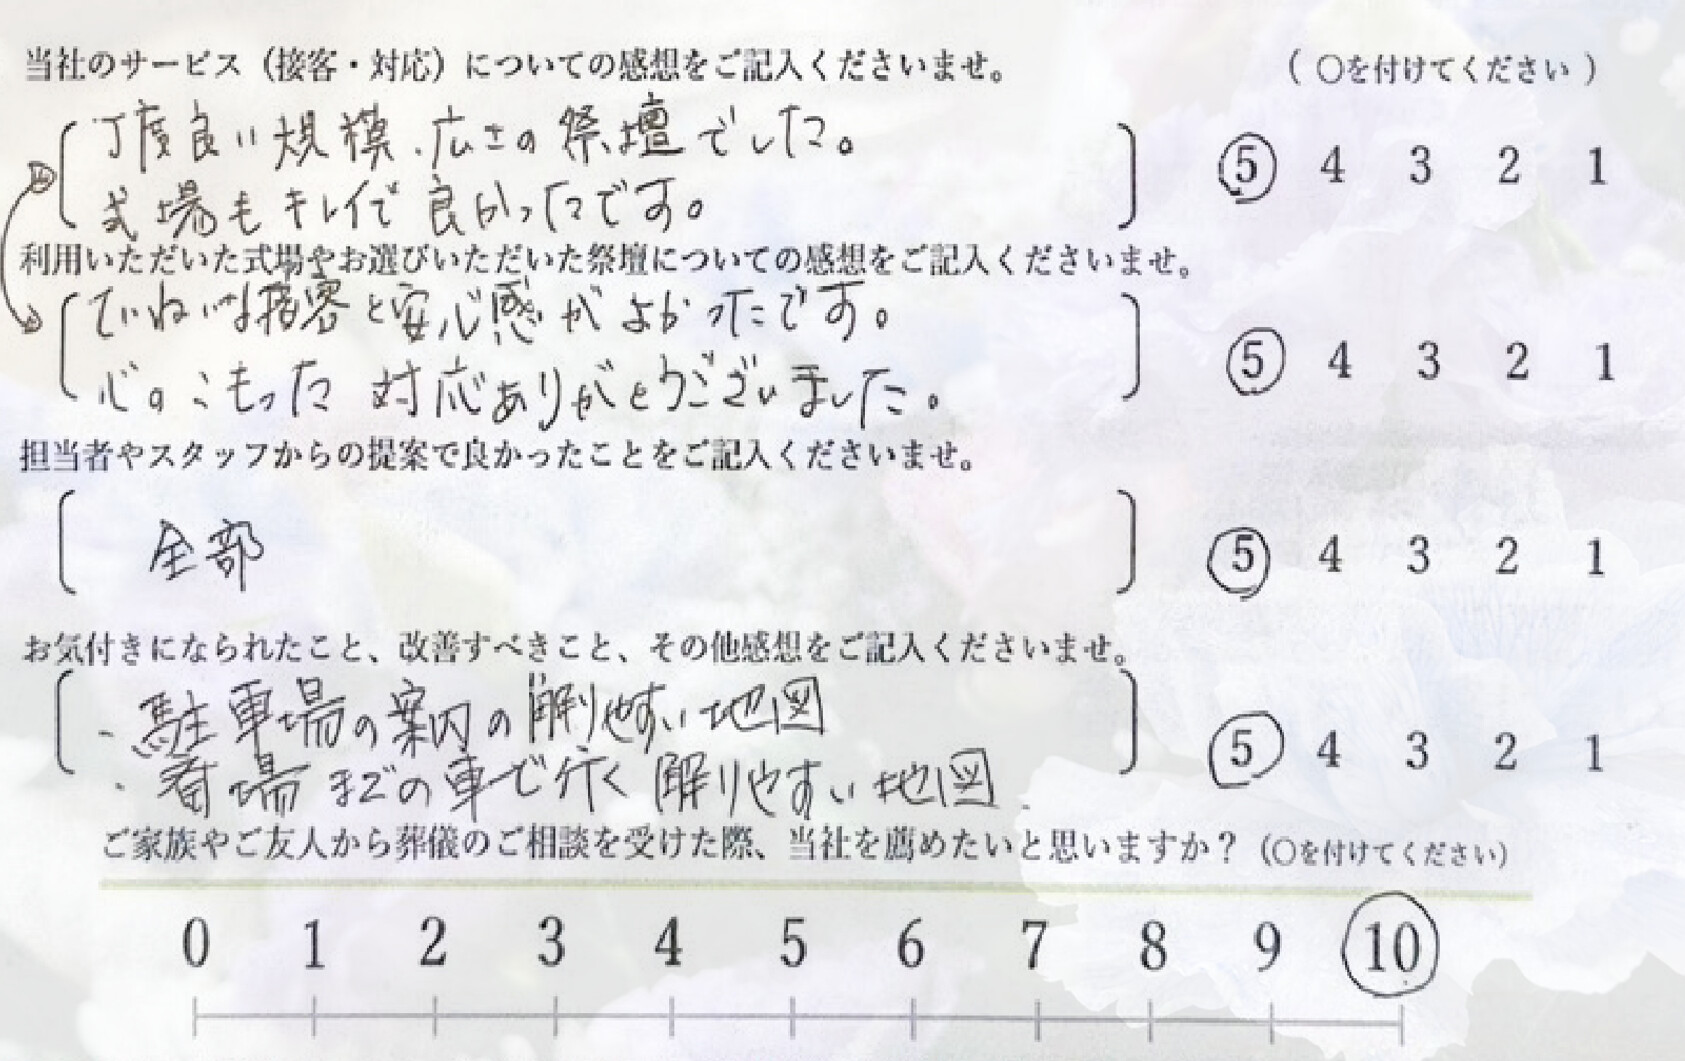 当社のサービス（接客・対応）についての感想をご記入くださいませ。 （ ○を付けてください ）
丁度良い規模、広さの祭壇でした。
式場もキレイで良かったです。
5 4 3 2 1
利用いただいた式場やお選びいただいた祭壇についての感想をご記入くださいませ。
ていねいな接客と安心感がよかったです。
心のこもった対応ありがとうございました。
5 4 3 2 1
担当者やスタッフからの提案で良かったことをご記入くださいませ。
全部
5 4 3 2 1
お気付きになられたこと、改善すべきこと、その他感想をご記入くださいませ。
・駐車場の案内の解りやすい地図
・斎場までの車で行く解りやすい地図
5 4 3 2 1
ご家族やご友人から葬儀のご相談を受けた際、当社を薦めたいと思いますか？（○を付けてください）
0 1 2 3 4 5 6 7 8 9 10